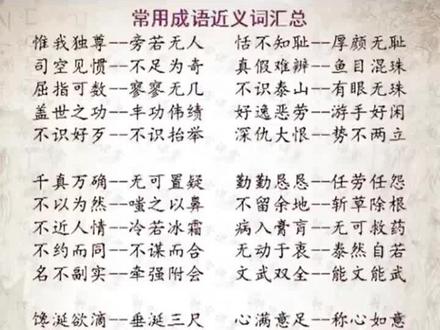 常用成语近义词汇总
惟我独尊--旁若无人 恬不知耻--厚颜无耻
司空见惯--不足为奇 真假难辨--鱼目混珠
屈指可数--寥寥无几 不识泰山--有眼无珠
盖世之功--丰功伟绩 好逸恶劳--游手好闲
不识好歹--不识抬举 深仇大恨--势不两立
千真万确--无可置疑 勤勤恳恳--任劳任怨
不以为然--嗤之以鼻 不留余地--斩草除根
不近人情--冷若冰霜 病入膏肓--无可救药
不约而同--不谋而合 无动于衷--泰然自若
名不副实--牵强附会 文武双全--能文能武
馋涎欲滴--垂涎三尺 心满意足--称心如意